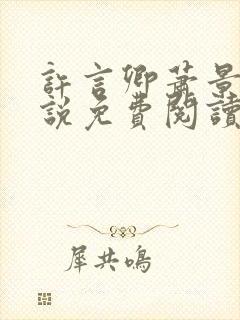 許言卿蕭景
說免費閱讀
犀共鳴